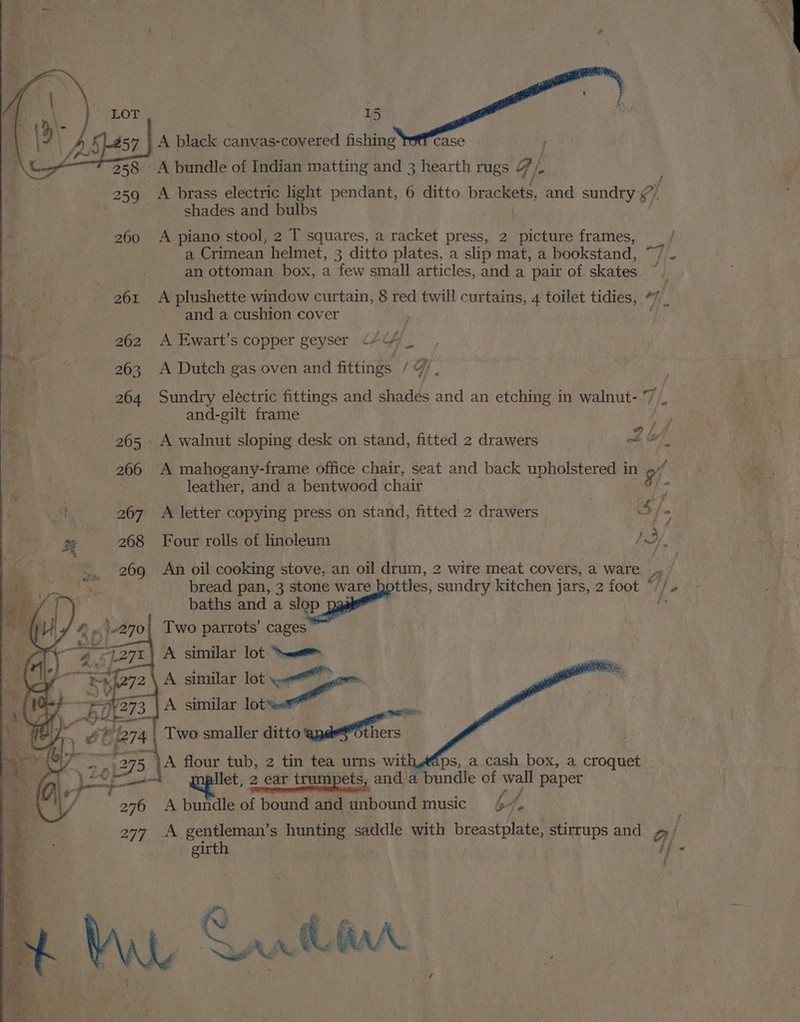 LOT 15
257 A black canvas-covered fishing rod case
258 A bundle of Indian matting and 3 hearth rugs
259 A brass electric light pendant, 6 ditto brackets, and sundry
shades and bulbs
260 A piano stool, 2 T squares, a racket press, 2 picture frames,
a Crimean helmet, 3 ditto plates, a slip mat, a bookstand,
an ottoman box, a few small articles, and a pair of skates
261 A plushette window curtain, 8 red twill curtains, 4 toilet tidies,
and a cushion cover
262 A Ewart's copper geyser
263 A Dutch gas oven and fittings
264 Sundry electric fittings and shades and an etching in walnut-
and-gilt frame
265 A walnut sloping desk on stand, fitted 2 drawers
266 A mahogany-frame office chair, seat and back upholstered in
leather, and a bentwood chair
267 A letter copying press on stand, fitted 2 drawers
268 Four rolls of linoleum
269 An oil cooking stove, an oil drum, 2 wire meat covers, a ware
bread pan, 3 stone ware bottles, sundry kitchen jars, 2 foot
baths and a slop pail
270 Two parrots' cages
271 A similar lot
272 A similar lot
273 A similar lot
274 Two smaller ditto and 3 others
275 A flour tub, 2 tin tea urns with taps, a cash box, a croquet
mallet, 2 ear trumpets, and a bundle of wall paper
276 A bundle of bound and unbound music
277 A gentleman's hunting saddle with breastplate, stirrups and
girth